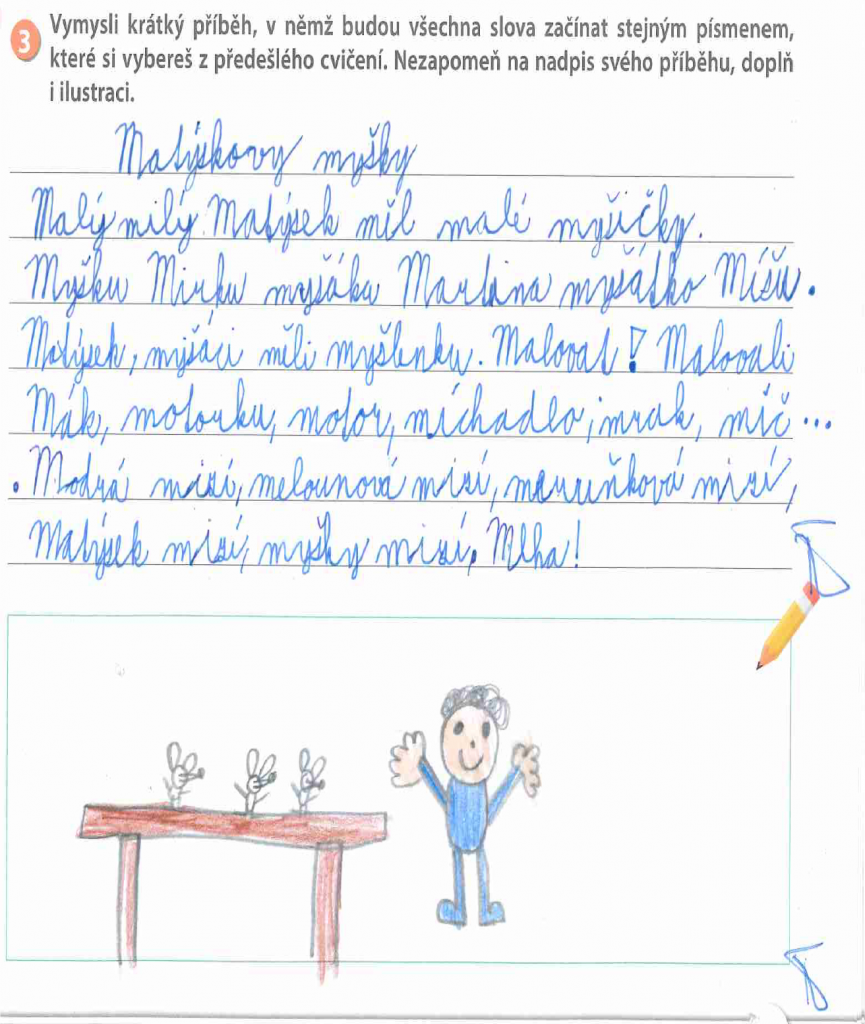 3 Vymysli krátký příběh, v němž budou všechna slova začínat stejným písmenem,
které si vybereš z předešlého cvičení. Nezapomeň na nadpis svého příběhu, doplň
i ilustraci.
Matýskovy myšky
Malý milý Matýsek měl malé myšičky.
Myšku Mirku myšáka Martina myšátko Míšu.
Matýsek, myšáci měli myšlenku. Malovat! Malovali
Mák, motorku, motor, míchadlo, mrak, míč...
. Modrá mizí, melounová mizí, meruňková mizí,
Matýsek mizí, myšky mizí. Mlha!